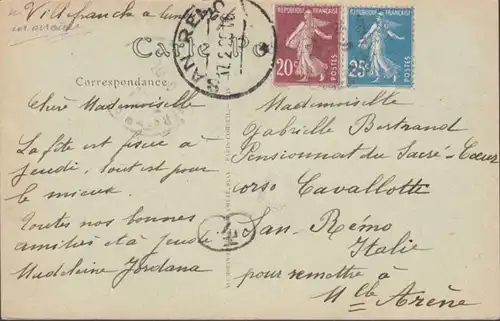 Villefranche
Carte Po
SAN REMO
17.2.2
20c REPUBLIQUE FRANÇAISE POSTES
25c REPUBLIQUE FRANÇAISE POSTES
Correspondance
Chère Mademoiselle
La fête est fixée à
jeudi, tout est pour
le mieux.
Toutes nos bonnes
amitiés et à jeudi
Madeleine Jordana
Mademoiselle
Gabrielle Bertrand
Pensionnat du Sacré-Cœur
corso Cavallotti
San-Rémo
Italie
pour remettre à
Mlle Arène